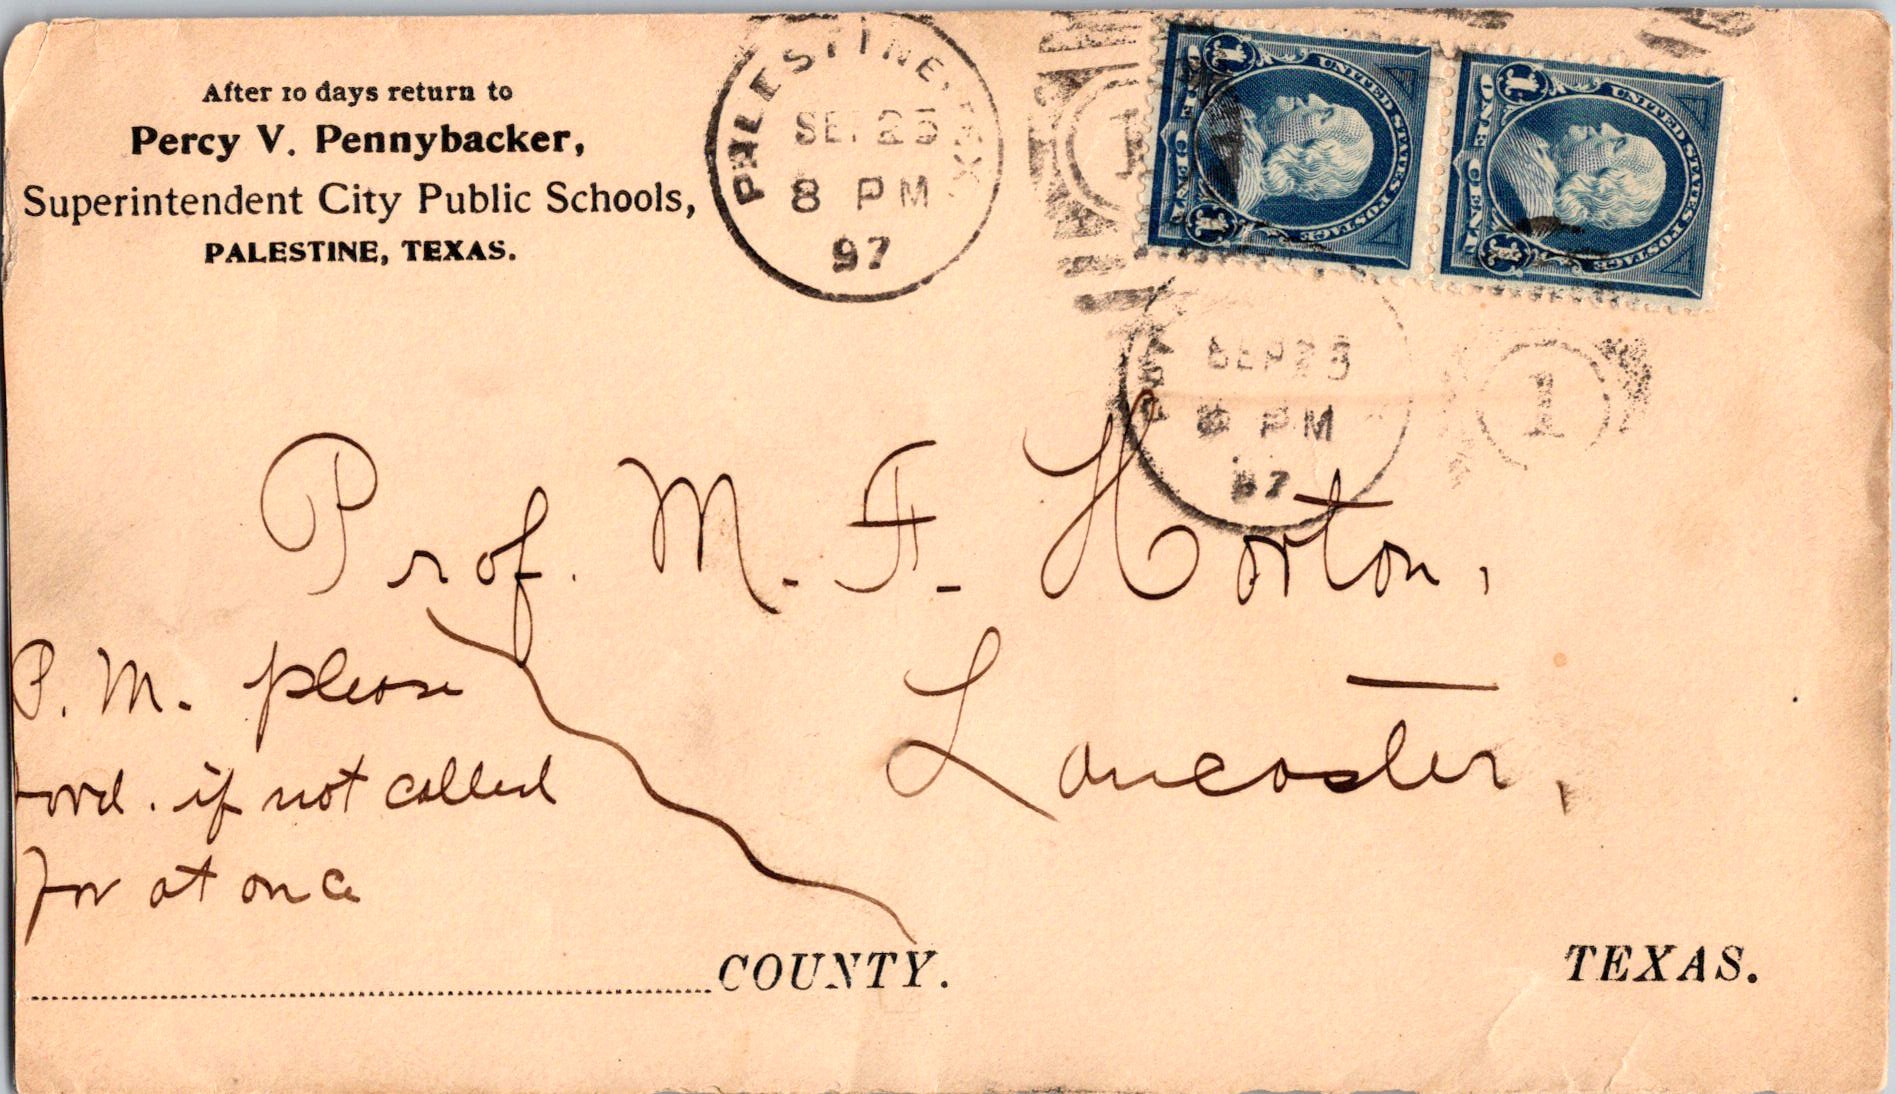 After 10 days return to
Percy V. Pennybacker,
Superintendent City Public Schools,
PALESTINE, TEXAS.
PALESTINE, TEX.
SEP 25
8 PM
97
1
UNITED STATES POSTAGE
ONE CENT
1
1
UNITED STATES POSTAGE
ONE CENT
1
1
SEP 25
8 PM
97
1
Prof. M. F. Horton,
Lancaster,
P. M. please
ford. if not called
for at once
COUNTY.
TEXAS.